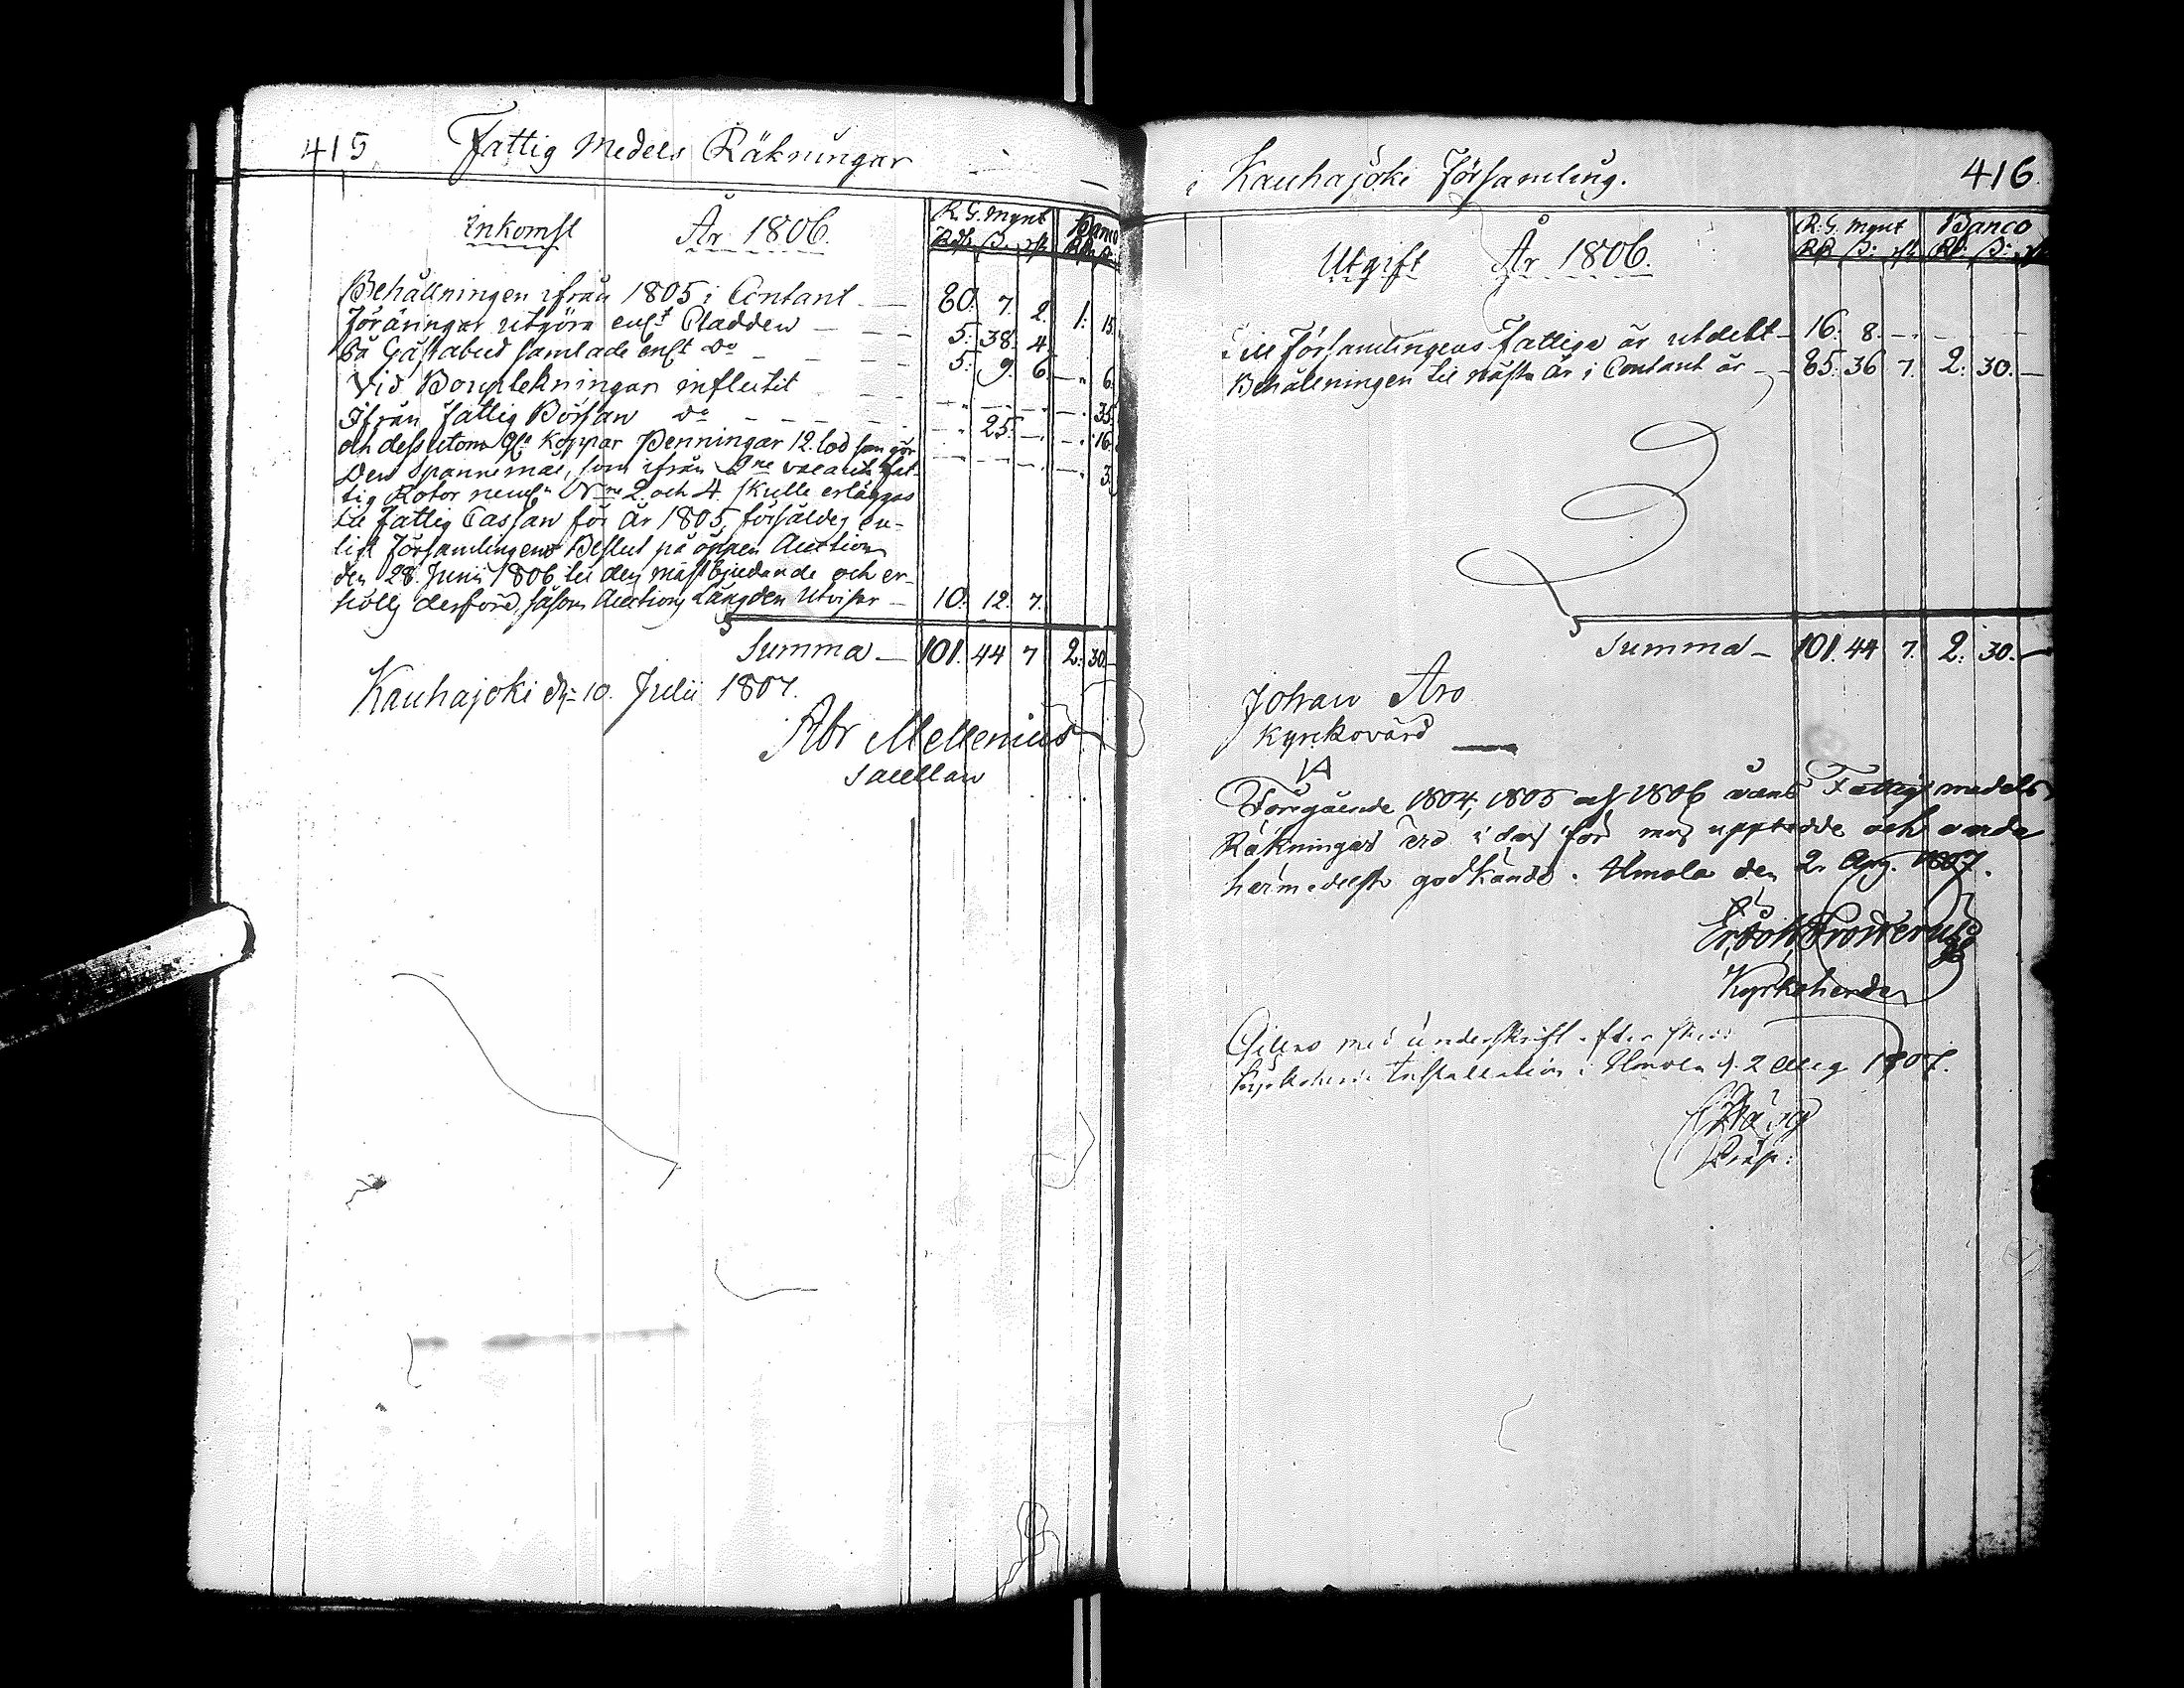 415 Fattig Medels Räkningar
Inkomst År 1806.
R. G. Mynt Banco
Rdr ß. rst. Rdr ß.
Behållningen ifrån 1805 i Contant — 80. 7. 2. 1. 15.
Föräringar utgöra enl:t Cladden — 5. 38. 4.
På Gästabud samlade enl:t D:o — 5. 9. 6. — 6.
Vid Bouptekningar influtit — 35.
Ifrån Fattig Börsan D:o — 25. — 16.
och dessutom Koppar Penningar 12. lod som gör — 3.
Den Spannemål, som ifrån vacante Fat-
tig Rotor neml:n N:ne 2. och 4. skulle erläggas
til Fattig Cassan för År 1805, försåldes en-
ligt Församlingens Beslut på öppen Auction
den 28. Junii 1806 til den mästbjudande och er-
hölls derföre, såsom Auctions Längden utvisar — 10. 12. 7.
Summa — 101. 44 7 2. 30.
Kauhajoki d. 10. Julii 1807.
Abr Mellenius
Sacellan
i Kauhajoki Församling. 416.
Utgift År 1806.
R. G. Mynt Banco
Rdr ß: rst. Rdr: ß:
Till Församlingens Fattiga är utdelt — 16. 8. —
Behållningen til nästa År i Contant är — 85. 36 7. 2. 30. —
Summa — 101. 44 7. 2. 30. —
Johan Aro
Kyrkovärd
Föregående 1804, 1805 och 1806 årens Fattigmedels
Räkningar äro i dag för mig uppteddе och varda
härmedelst godkände. Ilmola den 2. Aug. 1807.
Kyrkoherde
med underskrift efter
Installation i Ilmola d. 2 Aug 1807.